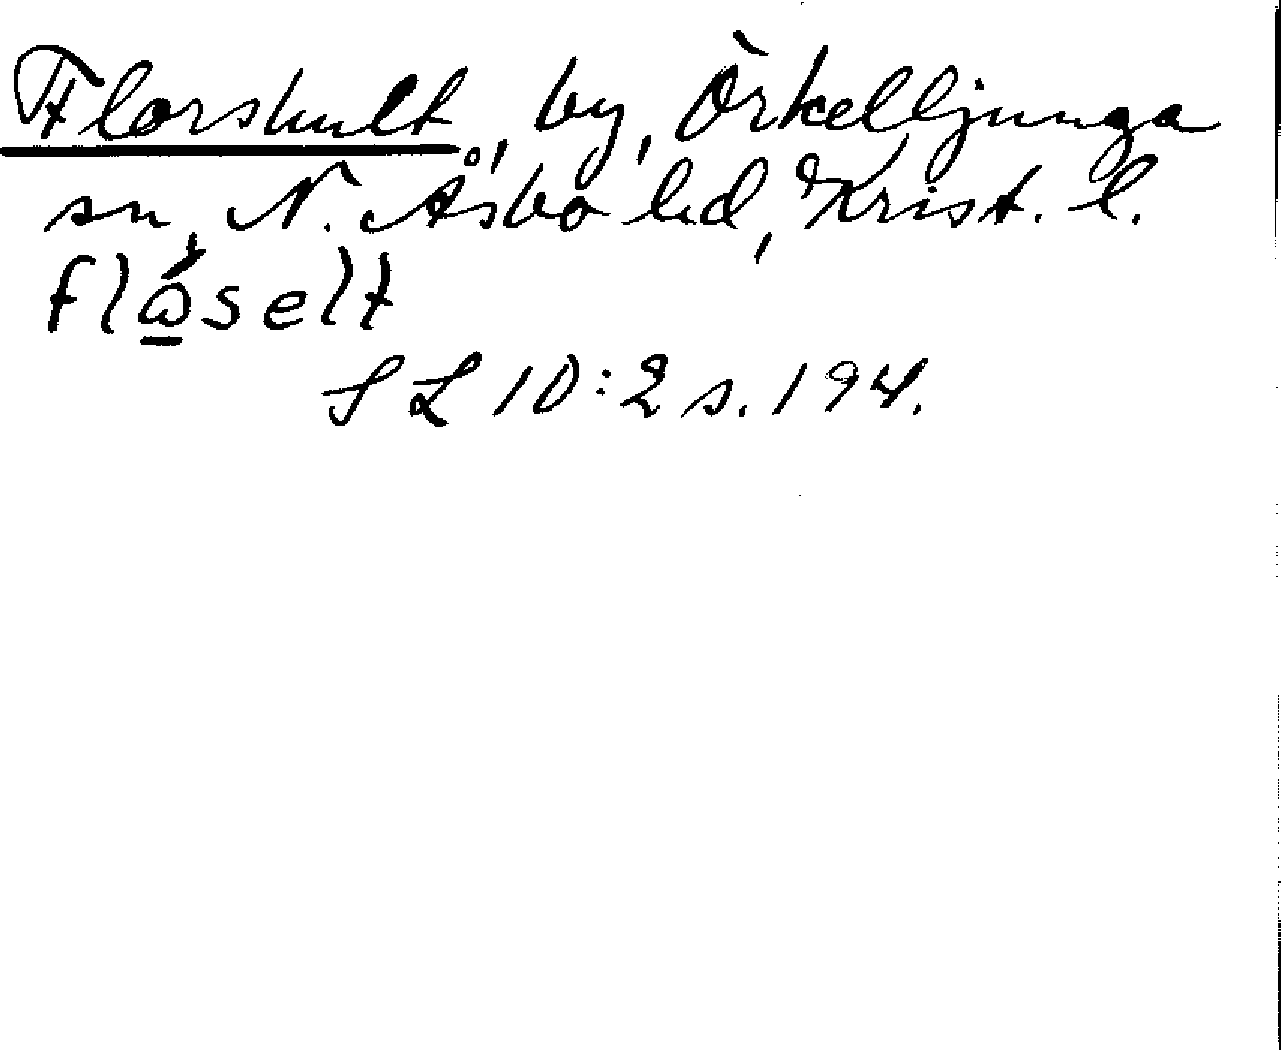 Florshult, by, Örkelljunga
sn, N. Åsbo hd, Krist. l.
flώ̲selt
SL 10:2 s. 194.